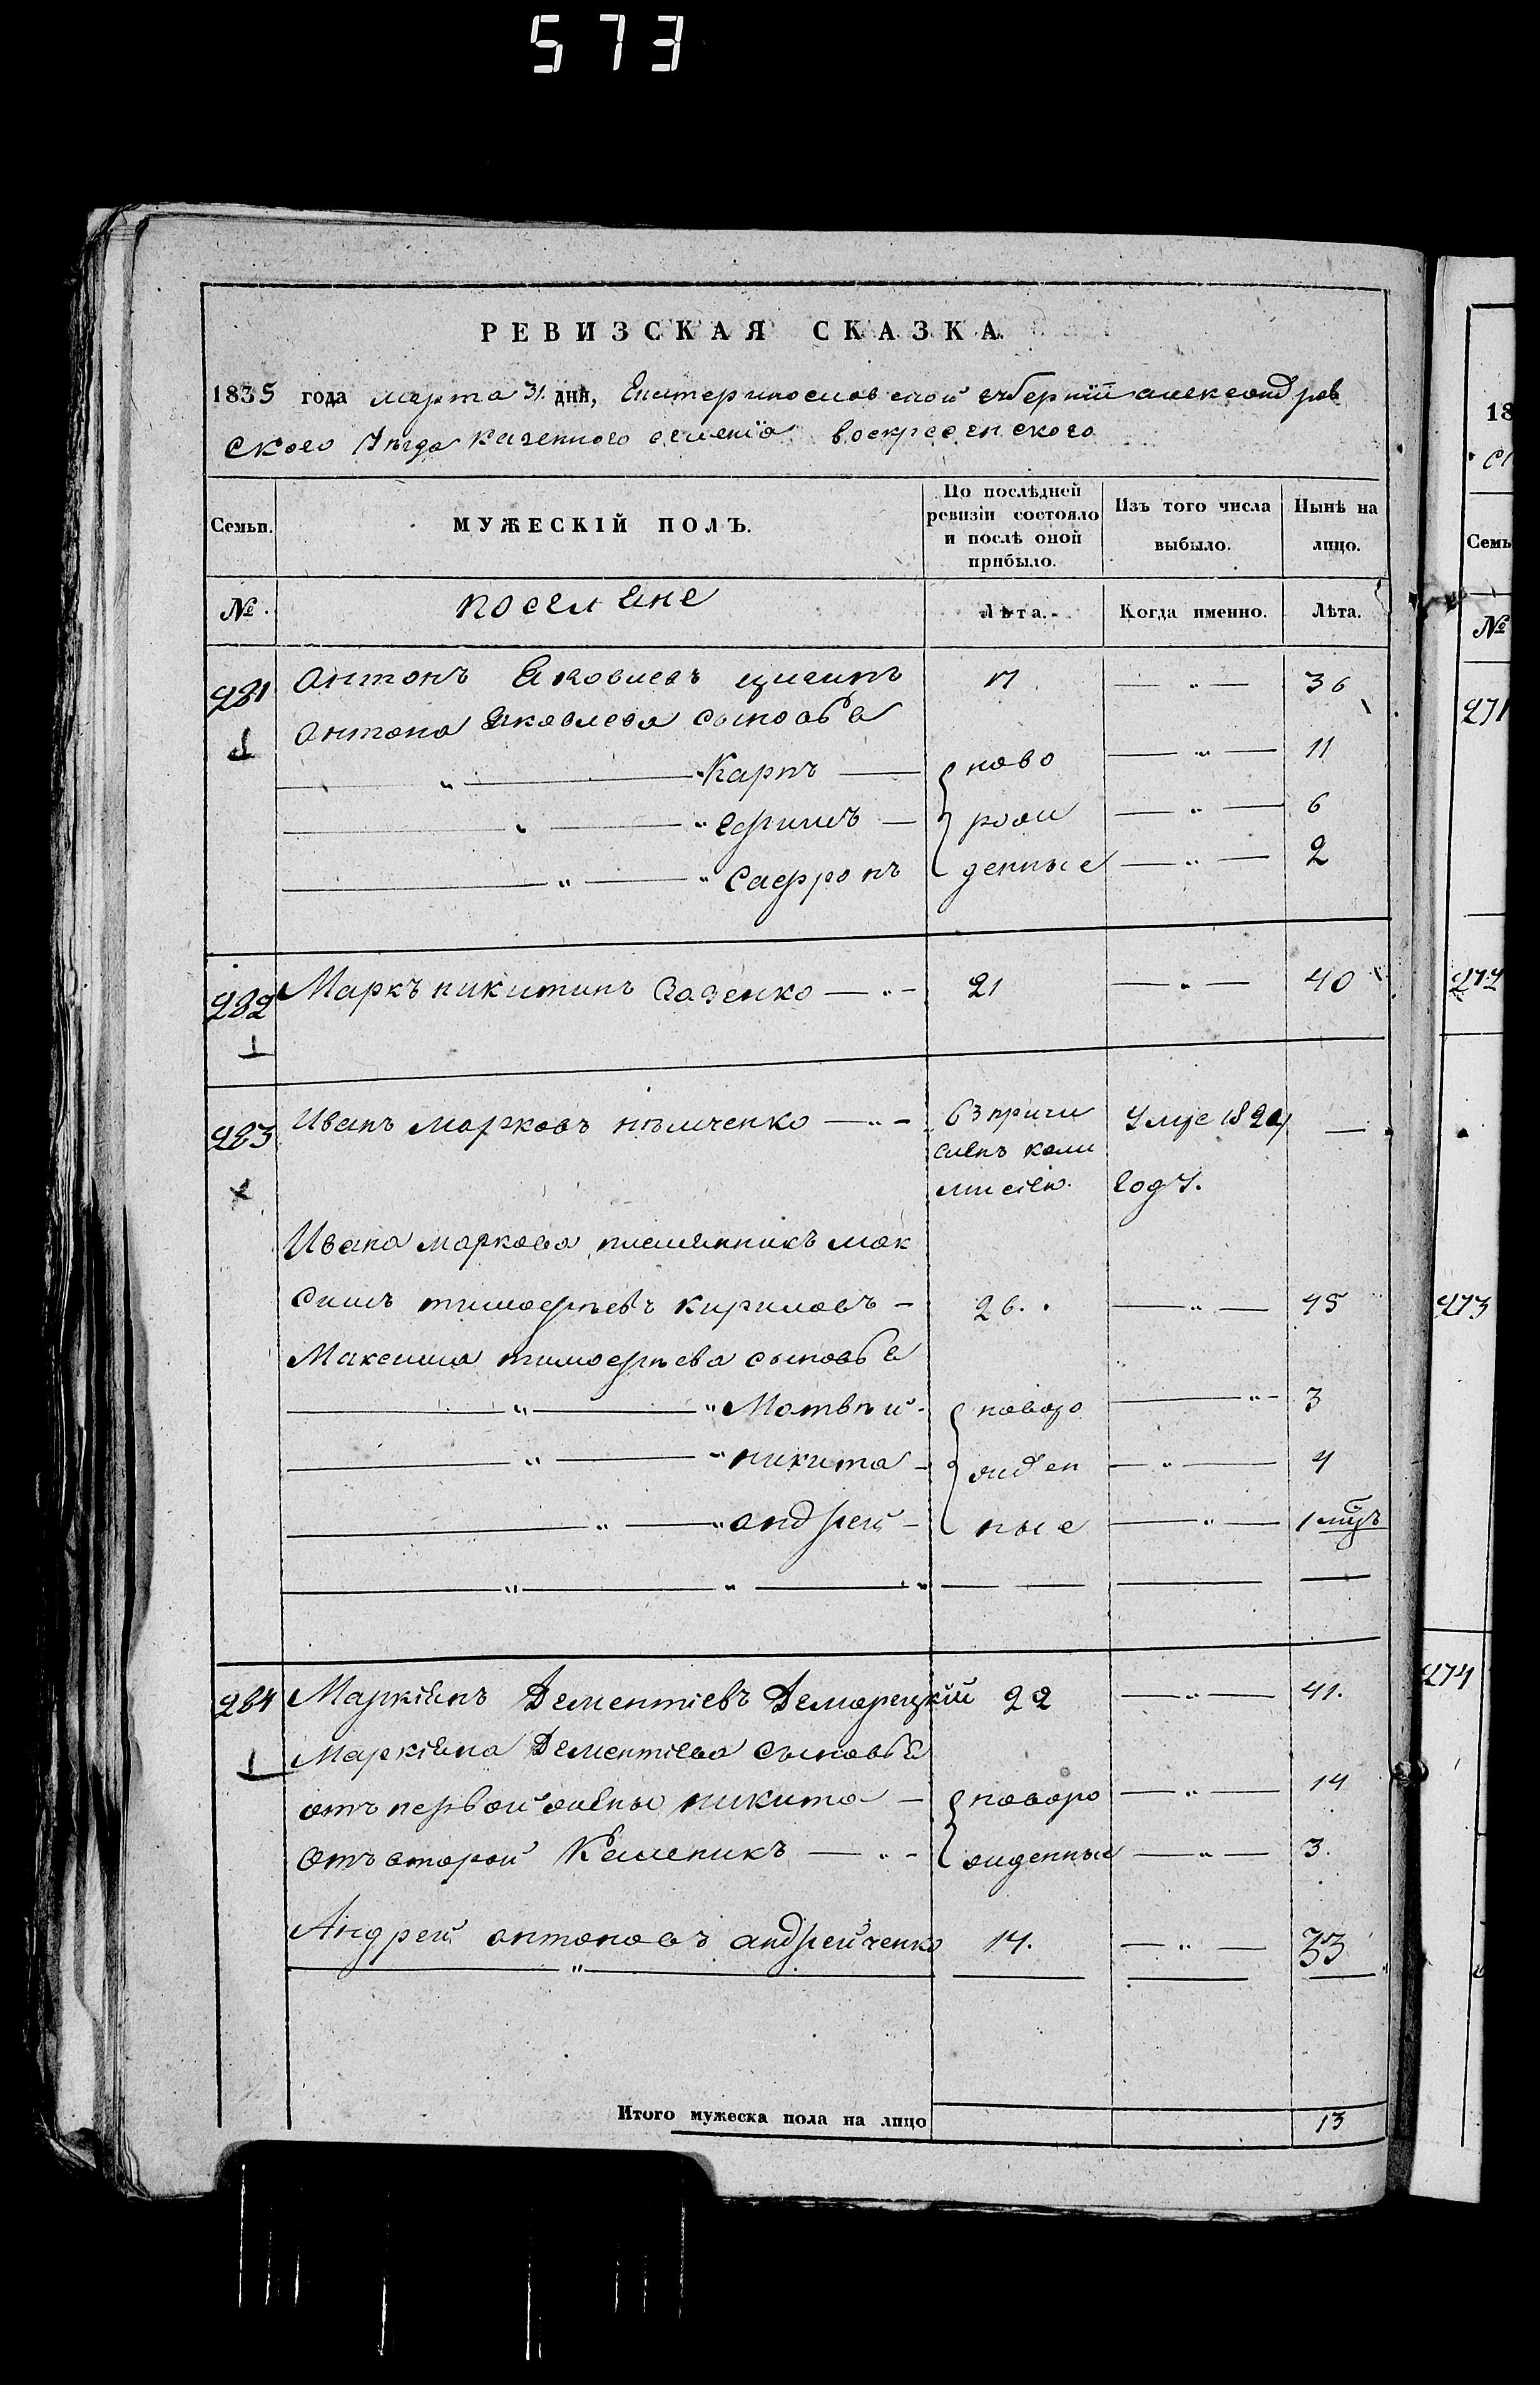 573
РЕВИЗСКАЯ СКАЗКА.
1835 года марта 31 дня, Екатеринославской губерніи александров
ского Уезда казенного селенія воскресенского
Семьи. МУЖЕСКІЙ ПОЛЪ. По послѣдней ревизіи состояло и послѣ оной прибыло. Изъ того числа выбыло. Нынѣ на лицо.
№. поселяне Лѣта. Когда именно. Лѣта.
281 Антонъ Яковлевъ 17 — „ — 36
Антона Яковлева сыновья
„ Карпъ — ново — „ — 11
„ „ Ефимъ — рож — „ — 6
„ „ Сафронъ денные — „ — 2
282 Маркъ никитинъ Зазенко — „ — 21 — „ — 40
283 Иванъ марковъ немченко — „ — 63 причи Умре 1824 —
сленъ коми
мисіею. году.
Ивана маркова племянникъ мак
симъ тимофѣевъ кириловъ — 26. — „ — 45
Максима тимофѣева сыновья
„ „ Матвѣй — новоро — „ — 3
„ „ никита — жден — „ — 4
„ „ андрей — ные — „ — 1 мцъ
284 Маркіянъ Дементіевъ 22 — „ — 41.
Маркіяна Дементіева сыновья
отъ первой жены никита — новоро — „ — 14
отъ второй — „ — жденные — „ — 3.
Андрей антоновъ андрейченко 14. — „ — 33
Итого мужеска пола на лицо 13
18
Семь
№
271
272
273
274